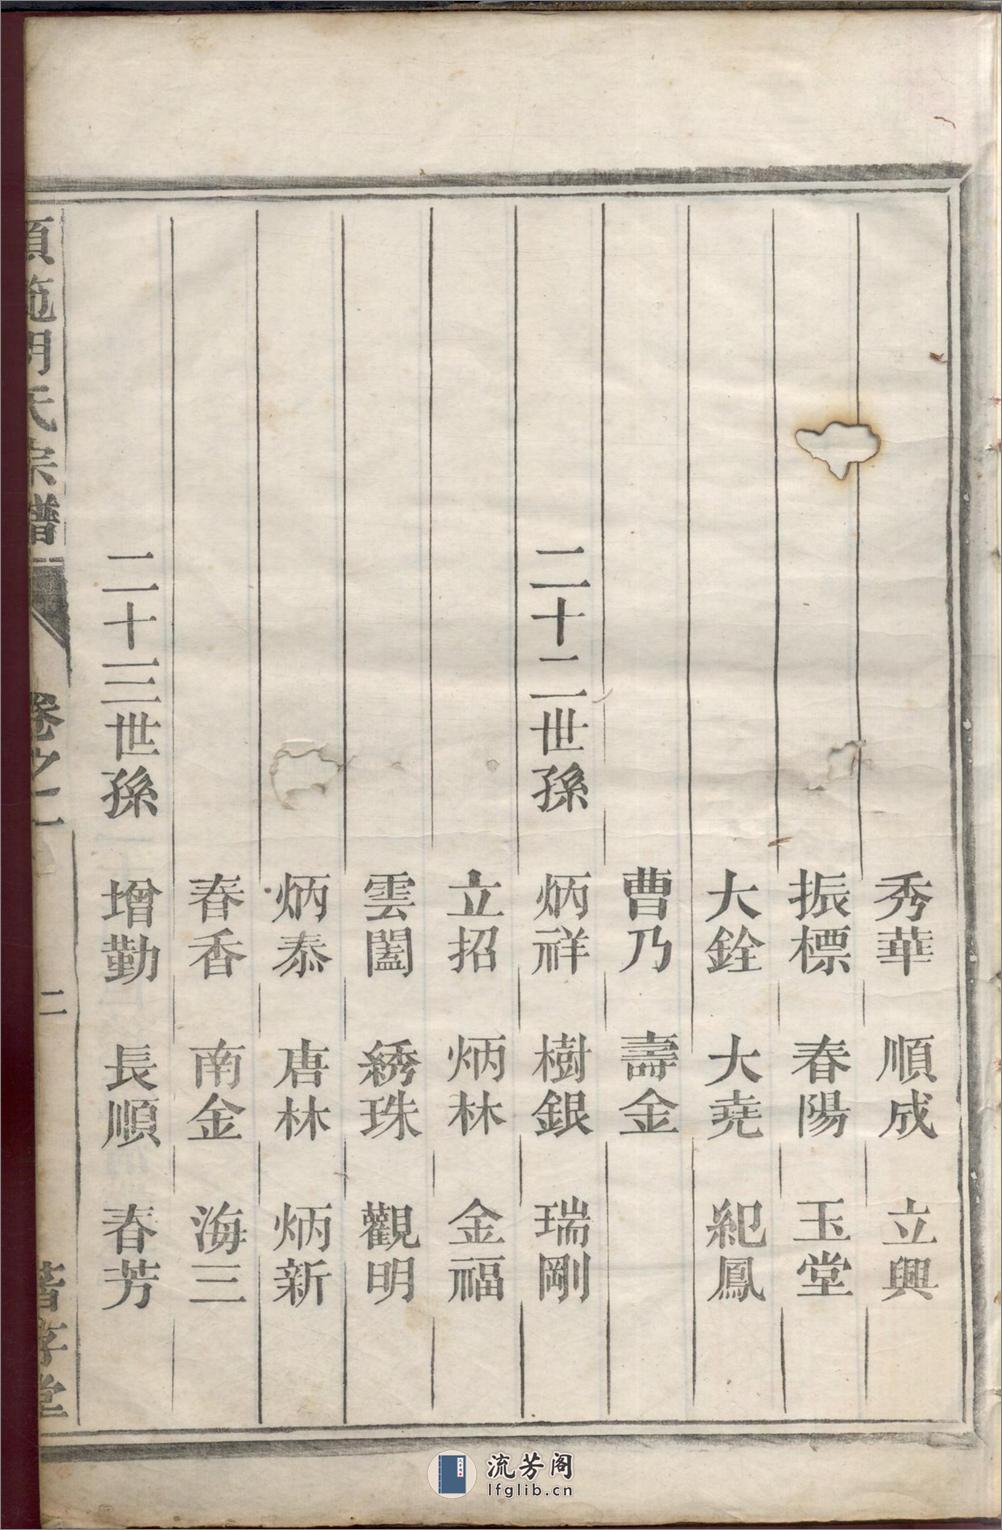 秀華 順成 立興
振標 春陽 玉堂
大銓 大堯 紀鳳
曹乃 壽金
二十二世孫 炳祥 樹銀 瑞剛
立招 炳林 金福
雲闔 綉珠 觀明
炳泰 唐林 炳新
春香 南金 海三
二十三世孫 增勤 長順 春芳
氏宗譜 卷之一 二 堂
流芳阁
lfglib.cn